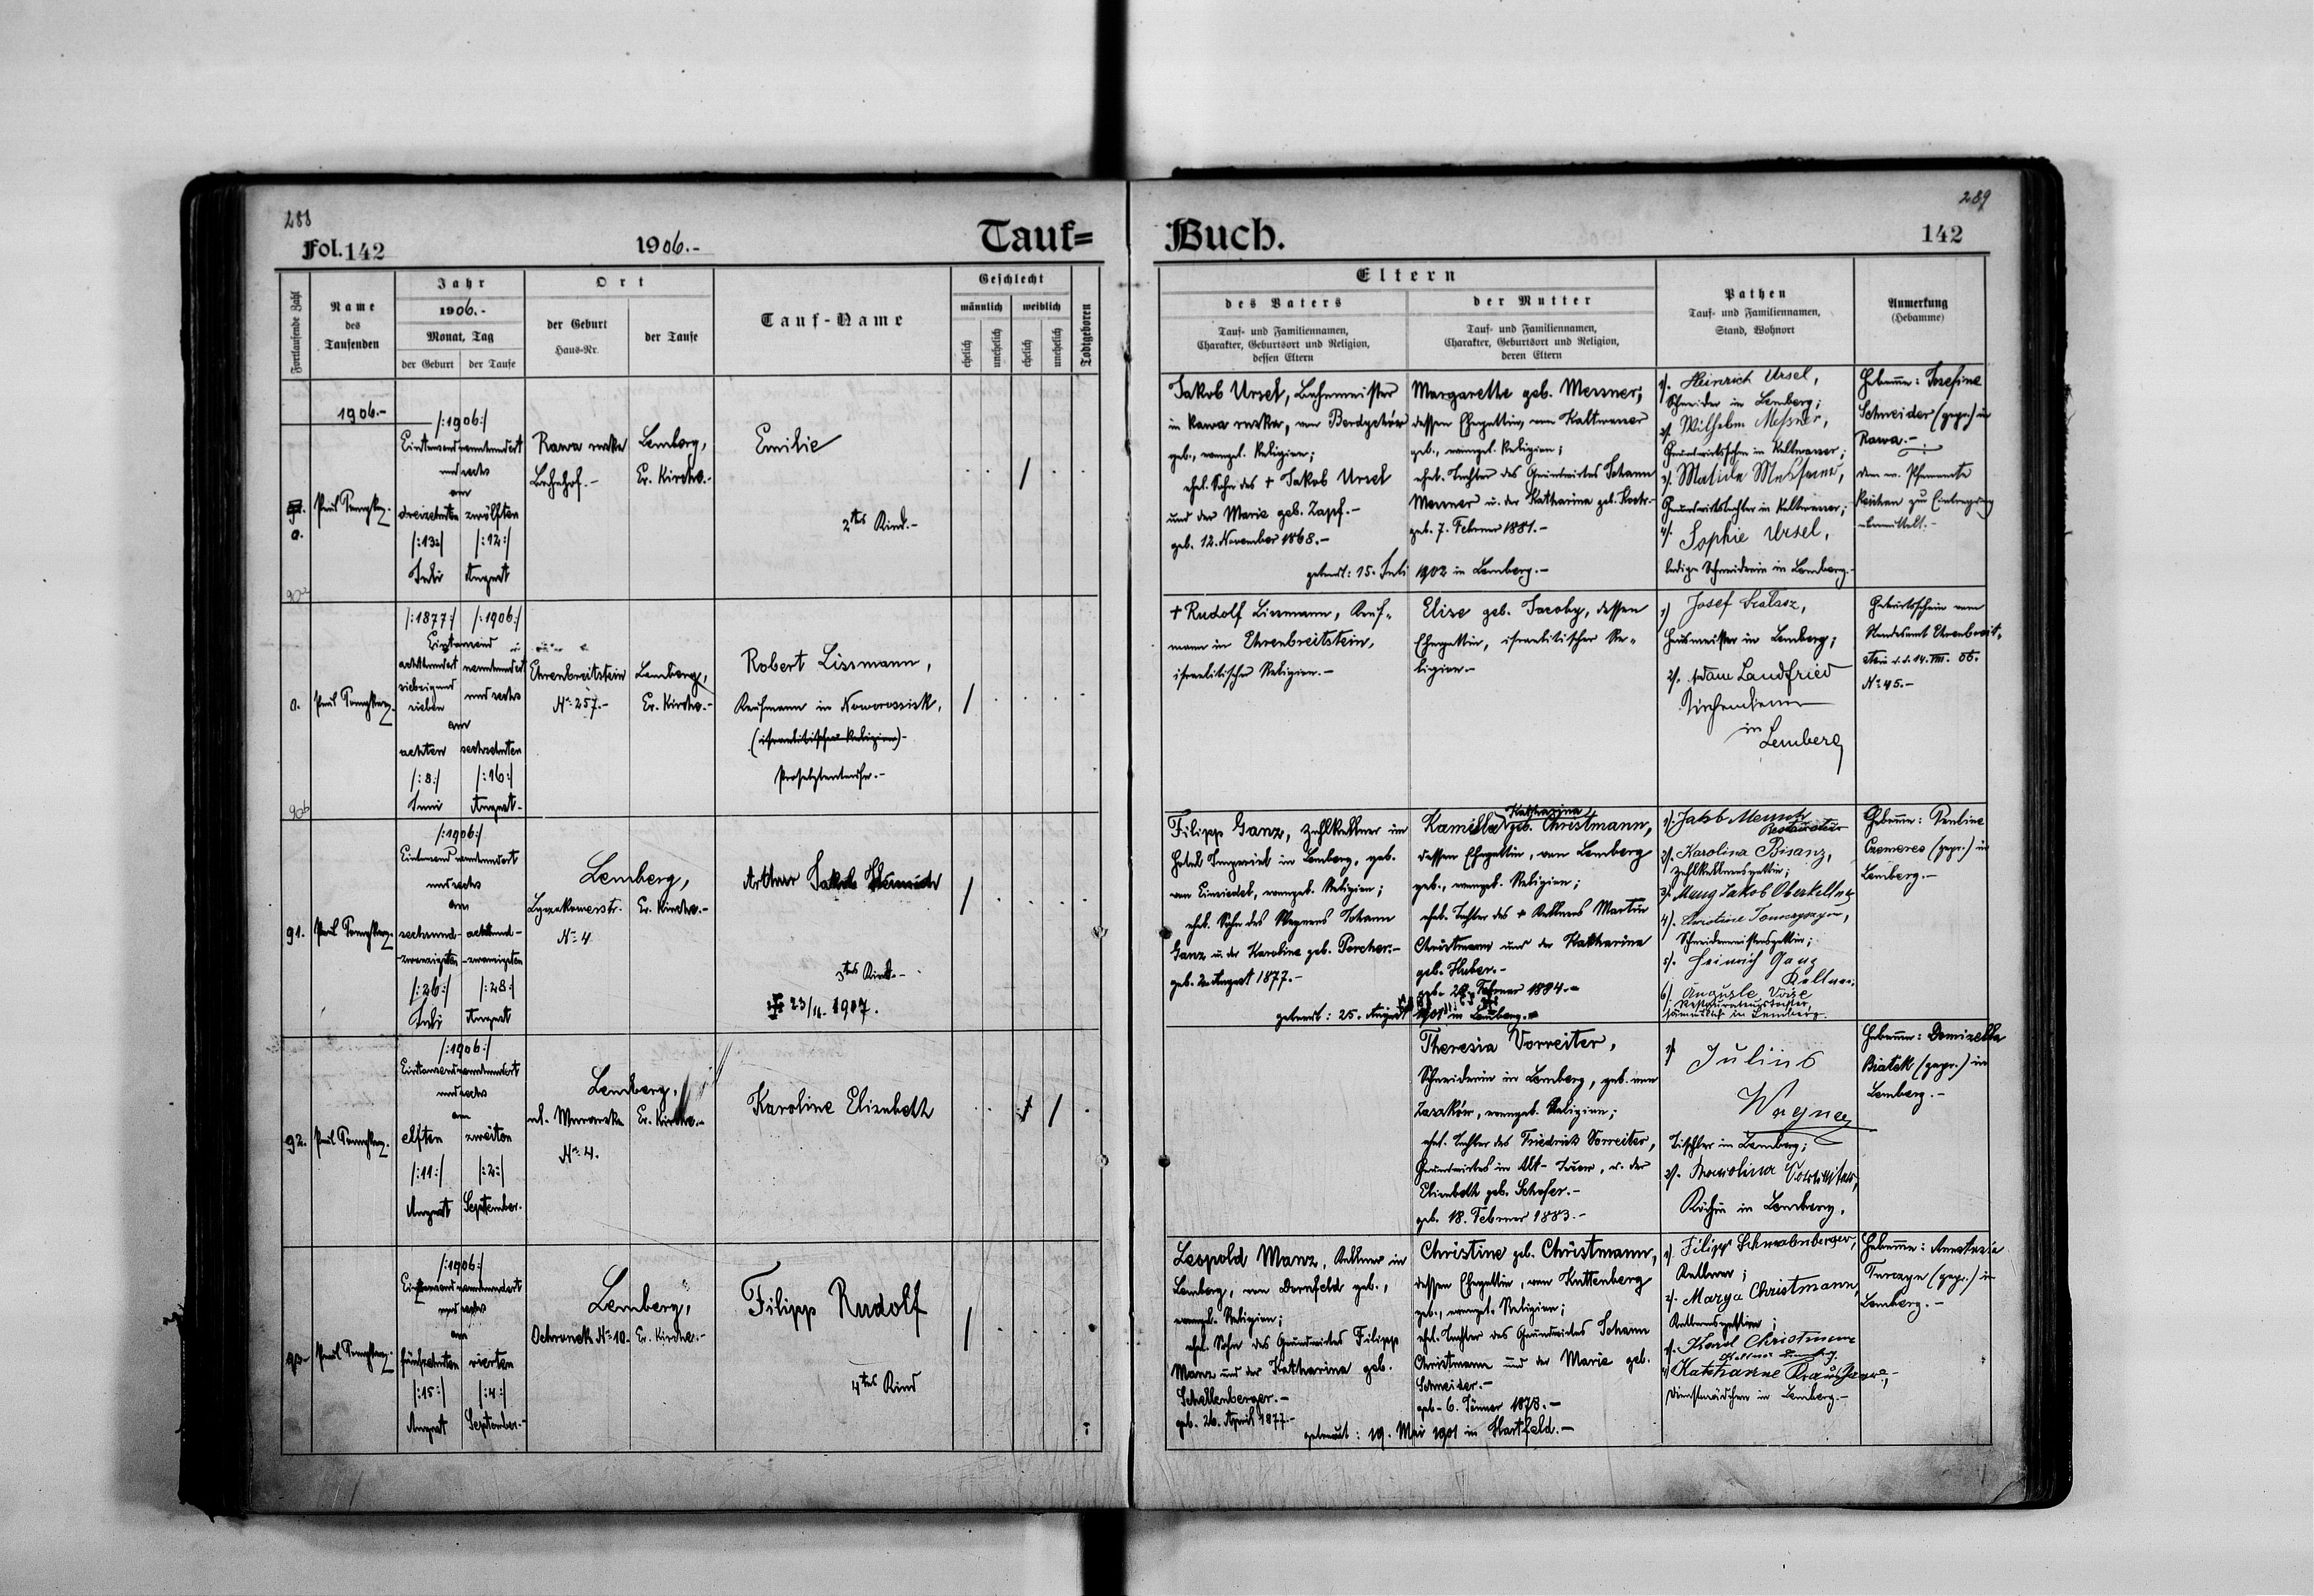 288
Fol. 142
1906.-
Tauf=
Fortlaufende Zahl
Name
des
Taufenden
Jahr
1906.-
Monat, Tag
der Geburt
der Taufe
Ort
der Geburt
Haus-Nr.
der Taufe
Tauf-Name
Geschlecht
männlich
weiblich
ehelich
unehelich
ehelich
unehelich
Todtgeboren
1906.-
/:1906:/
und sechs
am
dreizehnten
zwölften
/:13:/
/:12:/
Juli
August
Rawa ruska
Bahnhof.-
Lemberg,
Ev. Kirche.-
Emilie
2tes Kind.-
a.
90a
/:1877:/
/:1906:/
Eintausend
achthundert
neunhundert
siebzig und
und sechs
sieben
am
achten
sechzehnten
/:8:/
/:16:/
Juni
August.-
Ehrenbreitstein
Nº 257.-
Lemberg,
Ev. Kirche.-
Robert Lissmann,
Kaufmann in Noworossisk,
(israelitischer Religion)-
Proselytentaufe.-
90b
/:1906:/
Eintausend neunhundert
und sechs
am
91.
sechsund-
achtund-
zwanzigsten
-zwanzigsten
/:26:/
/:28:/
Juli
August
Lemberg,
Lyczakowerstr.
Nº 4
Ev. Kirche.-
Arthur Jakob Heinrich
3tes Kind.-
23/11. 1907.
/:1906:/
Eintausend neunhundert
und sechs
am
92.
elften
zweiten
/:11:/
/:2:/
August
September.
Lemberg,
Nº 4.
Ev. Kirche.-
Karoline Elisabeth
/:1906:/
Eintausend neunhundert
und sechs
am
93.
fünfzehnten
vierten
/:15:/
/:4:/
August
September.-
Lemberg,
Ochronek Nº 10.
Ev. Kirche.-
Filipp Rudolf
4tes Kind
289
Buch.
142
Eltern
des Vaters
Tauf- und Familiennamen,
Charakter, Geburtsort und Religion,
dessen Eltern
der Mutter
Tauf- und Familiennamen,
Charakter, Geburtsort und Religion,
deren Eltern
Pathen
Tauf- und Familiennamen,
Stand, Wohnort
Anmerkung
(Hebamme)
Jakob Ursel, Bahnmeister
in Rawa ruska, von Berdychów
geb., evangel. Religion;
ehel. Sohn des + Jakob Ursel
und der Marie geb. Zapf.-
geb. 12. November 1868.-
Margarethe geb. Messner,
dessen Ehegattin, von Kaltwasser
geb., evangel. Religion;
ehel. Tochter des Grundwirtes Johann
Messner u. der Katharina geb.
geb. 7. Februar 1881.-
getraut: 15. Juli 1902 in Lemberg.-
1). Heinrich Ursel,
Schneider in Lemberg;
2). Wilhelm Messner,
Grundwirtssohn in Kaltwasser;
3). Matilde
Grundwirtstochter in Kaltwasser;
4). Sophie Ursel,
ledige Schneiderin in Lemberg.-
Hebamme: Josefine
Schneider (gepr.) in
Rawa.-
+ Rudolf Lissmann, Kauf-
mann in Ehrenbreitstein,
israelitischer Religion.-
Elise geb. Jacoby, dessen
Ehegattin, israelitischer Re-
ligion.-
1) Josef
Hausmeister in Lemberg;
2). Adam Landfried
Kirchendiener
in
Lemberg
Geburtsschein vom
Standesamt Ehrenbreit-
stein d.d. 14. VIII. 06.
Nº 45.-
Filipp Ganz, Zahlkellner im
Hotel Imperial in Lemberg, geb.
von Einsiedel, evangel. Religion;
ehel. Sohn des Wagners Johann
Ganz u. der Karoline geb. Porcher.-
geb. 2. August 1877.-
Katharina
Kamilla geb. Christmann,
dessen Ehegattin, von Lemberg
geb., evangel. Religion;
ehel. Tochter des + Kellners Martin
Christmann und der Katharina
geb. Huber.-
getraut: 25. August 1901 in Lemberg.-
1). Jakob Mensch
Restaurateur
2). Karolina Bisanz,
Zahlkellnersgattin;
3). Mang Jakob Oberkellner
4). Christine
Schneidermeistersgattin;
5). Heinrich Ganz
Kellner
6). Auguste
sämmtlich in Lemberg.
Hebamme: Pauline
(gepr.) in
Lemberg.-
Theresia Vorreiter,
Schneiderin in Lemberg, geb. von
evangel. Religion;
ehel. Tochter des Friedrich Vorreiter,
Grundwirtes in u. der
Elisabeth geb. Schafer.-
geb. 18. Februar 1883.-
1). Julius
Wagner
Tischler in Lemberg;
2). Karolina Vorreiter,
Köchin in Lemberg.
Hebamme: Domizella
Biatek (gepr.) in
Lemberg.-
Leopold Manz, Kellner in
Lemberg, von Dornfeld geb.,
evangel. Religion;
ehel. Sohn des Grundwirtes Filipp
Manz und der Katharina geb.
Schellenberger.-
geb. 26. April 1877.-
Christine geb. Christmann,
dessen Ehegattin, von Kuttenberg
geb., evangel. Religion;
ehel. Tochter des Grundwirtes Johann
Christmann und der Marie geb.
Schneider.-
geb. 6. Jänner 1878.-
getraut: 19. Mai 1901 in Hartfeld.-
1). Filipp Schwabenberger,
Kellner;
2). Marya Christmann,
Kellnersgattin;
3). Karl Christmann
4). Katharine
Dienstmädchen in Lemberg.-
Hebamme: Anastasia
Turczyn (gepr.) in
Lemberg.-